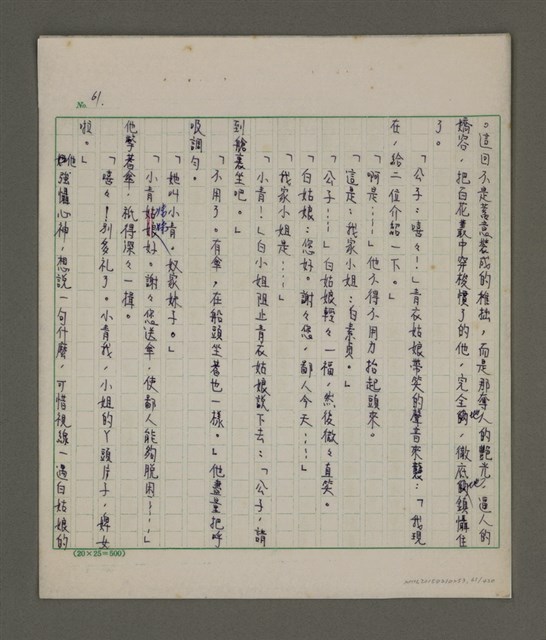 No. 61.
。這回不是蓄意裝成的樵拙，而是那奪人的艷光，逼人的
嬌容，把百花叢中穿梭慣了的他，完全地，徹底地鎮懾住
了。
「公子：嘻々！」青衣姑娘帶笑的聲音來襲：「我現
在，給二位介紹一下。」
「啊是⋯⋯」他不得不用力抬起頭來。
「這是：我家小姐：白素貞。」
「公子⋯⋯」白姑娘輕々一福，然後微々直笑。
「白姑娘：您好。謝々您，鄙人今天⋯⋯」
「我家小姐是⋯⋯」
「小青！」白小姐阻止青衣姑娘說下去：「公子，請
到艙裏坐吧。」
「不用了。有傘，在船頭坐著也一樣。」他盡量把呼
吸調勻。
「她叫小青。奴家妹子。」
「小青姑娘好。謝々您送傘，使鄙人能夠脫困⋯⋯」
他擎著傘，祇得深々一揖。
「嘻々！別多禮了。小青我，小姐的丫頭片子，婢女
啦。」
他強懾心神，想說一句什麼，可惜視線一遇白姑娘的
(20×25=500)